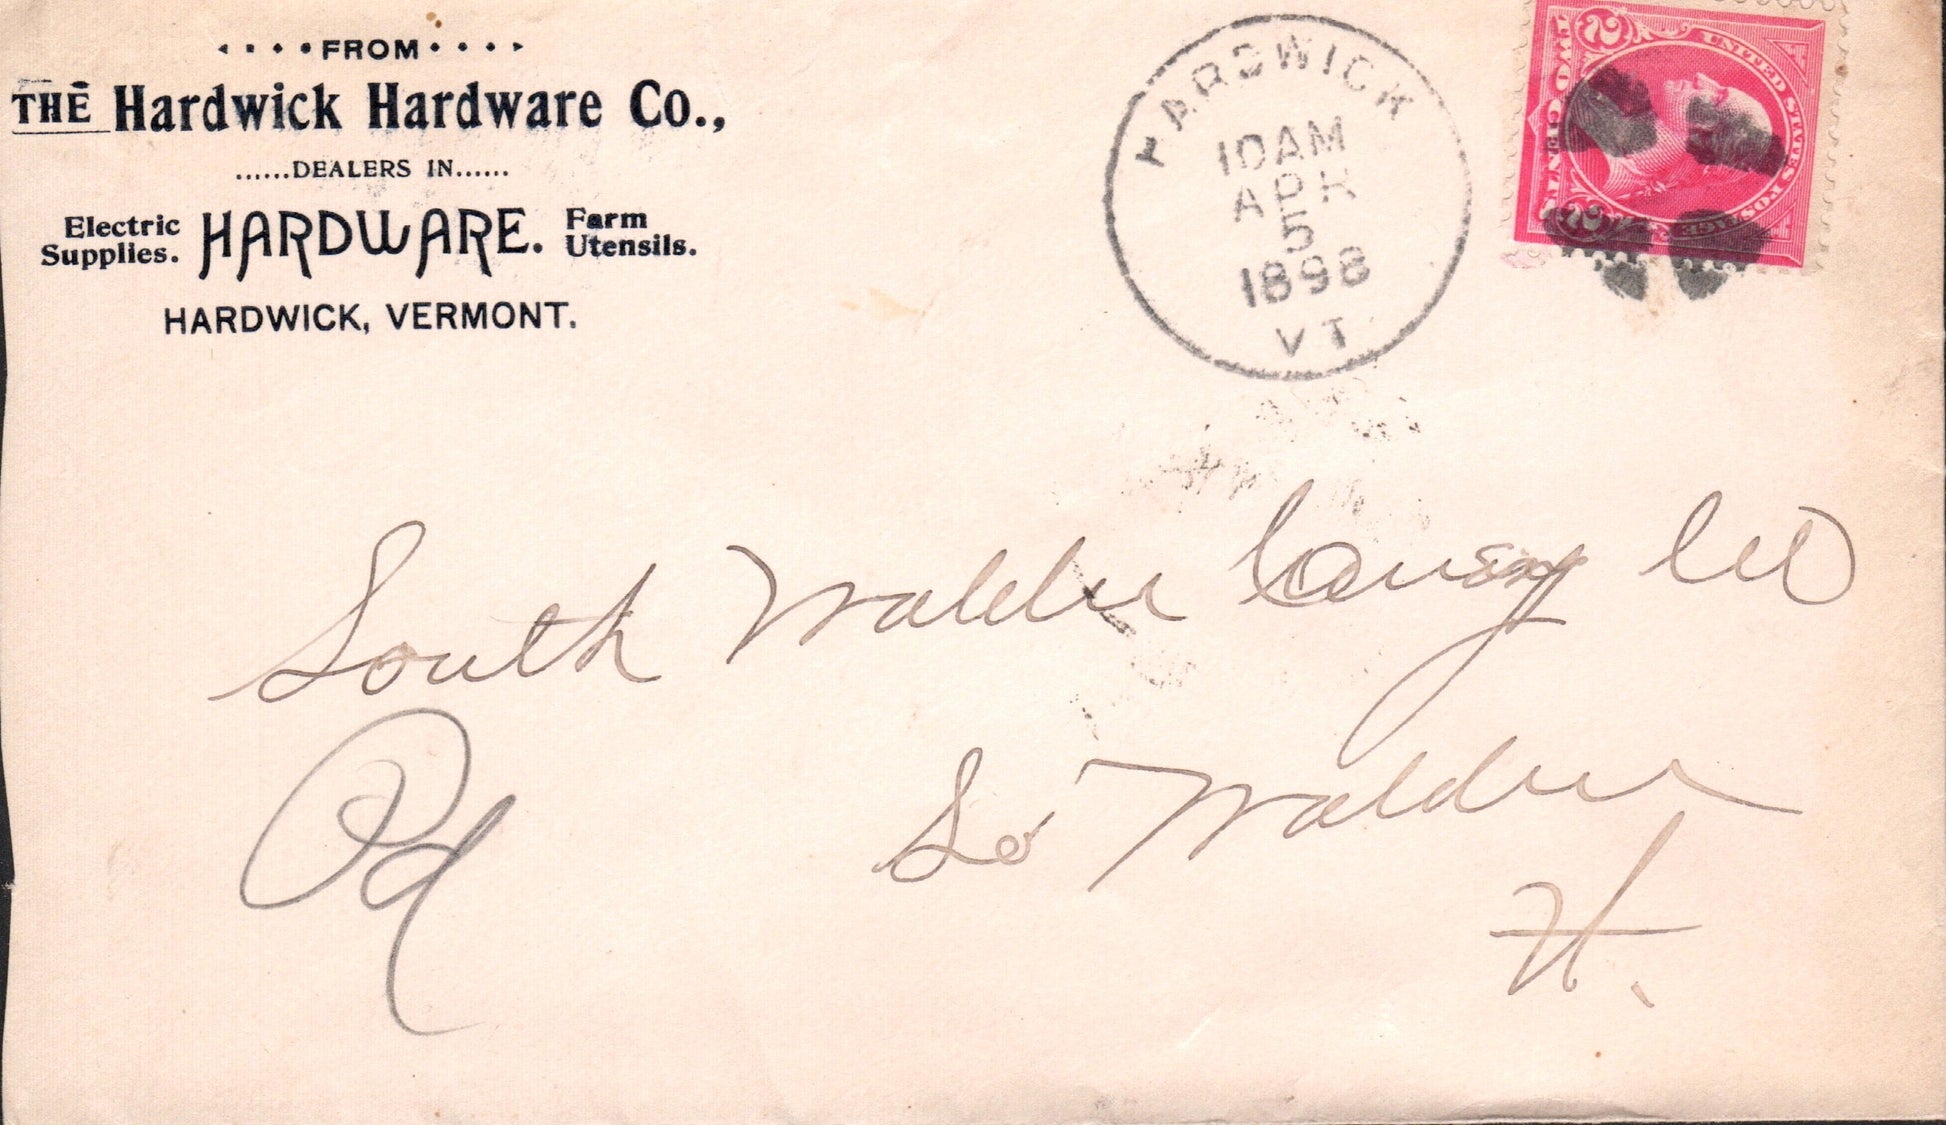 FROM
THE Hardwick Hardware Co.,
......DEALERS IN......
Electric Supplies. HARDWARE. Farm Utensils.
HARDWICK, VERMONT.
HARDWICK
10AM
APR
5
1898
VT
UNITED STATES POSTAGE
TWO CENTS
2 2
South Walden
So Walden
Vt.